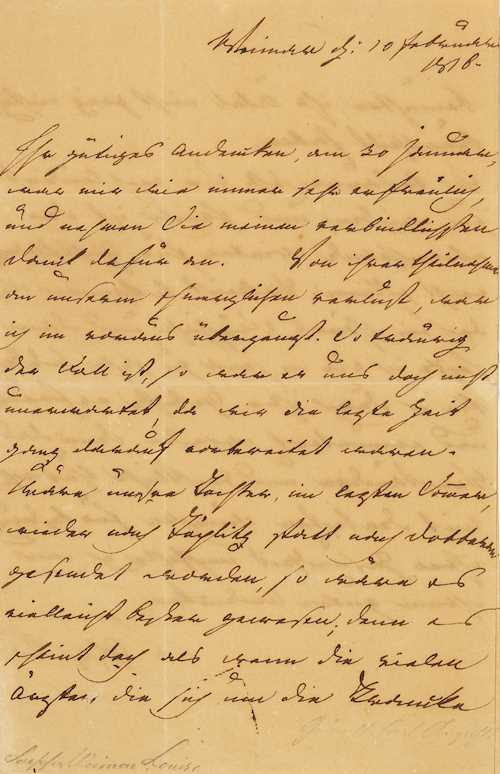 Weimar d: 10 Februar
1816.
Ihr gütiges Andencken, am 30 Januar,
war mir wie immer sehr erfreulich,
und nehmen Sie meinen verbindlichsten
Danck dafür an. Von ihrer theilnahme
an unserm schmerzlichen verlust, war
ich im voraus überzeugt. So traurig
der Fall ist, so war er uns doch nicht
unerwartet, da wir die lezte Zeit
ganz darauf vorbereitet waren.
Wäre unsre Tochter, im lezten Sommer,
wieder nach Töplitz statt nach Dobberan
gesendet worden, so wäre es
vielleicht besser gewesen, denn es
scheint doch als wenn die vielen
Ärzte, die sich um die Krancke
Louise